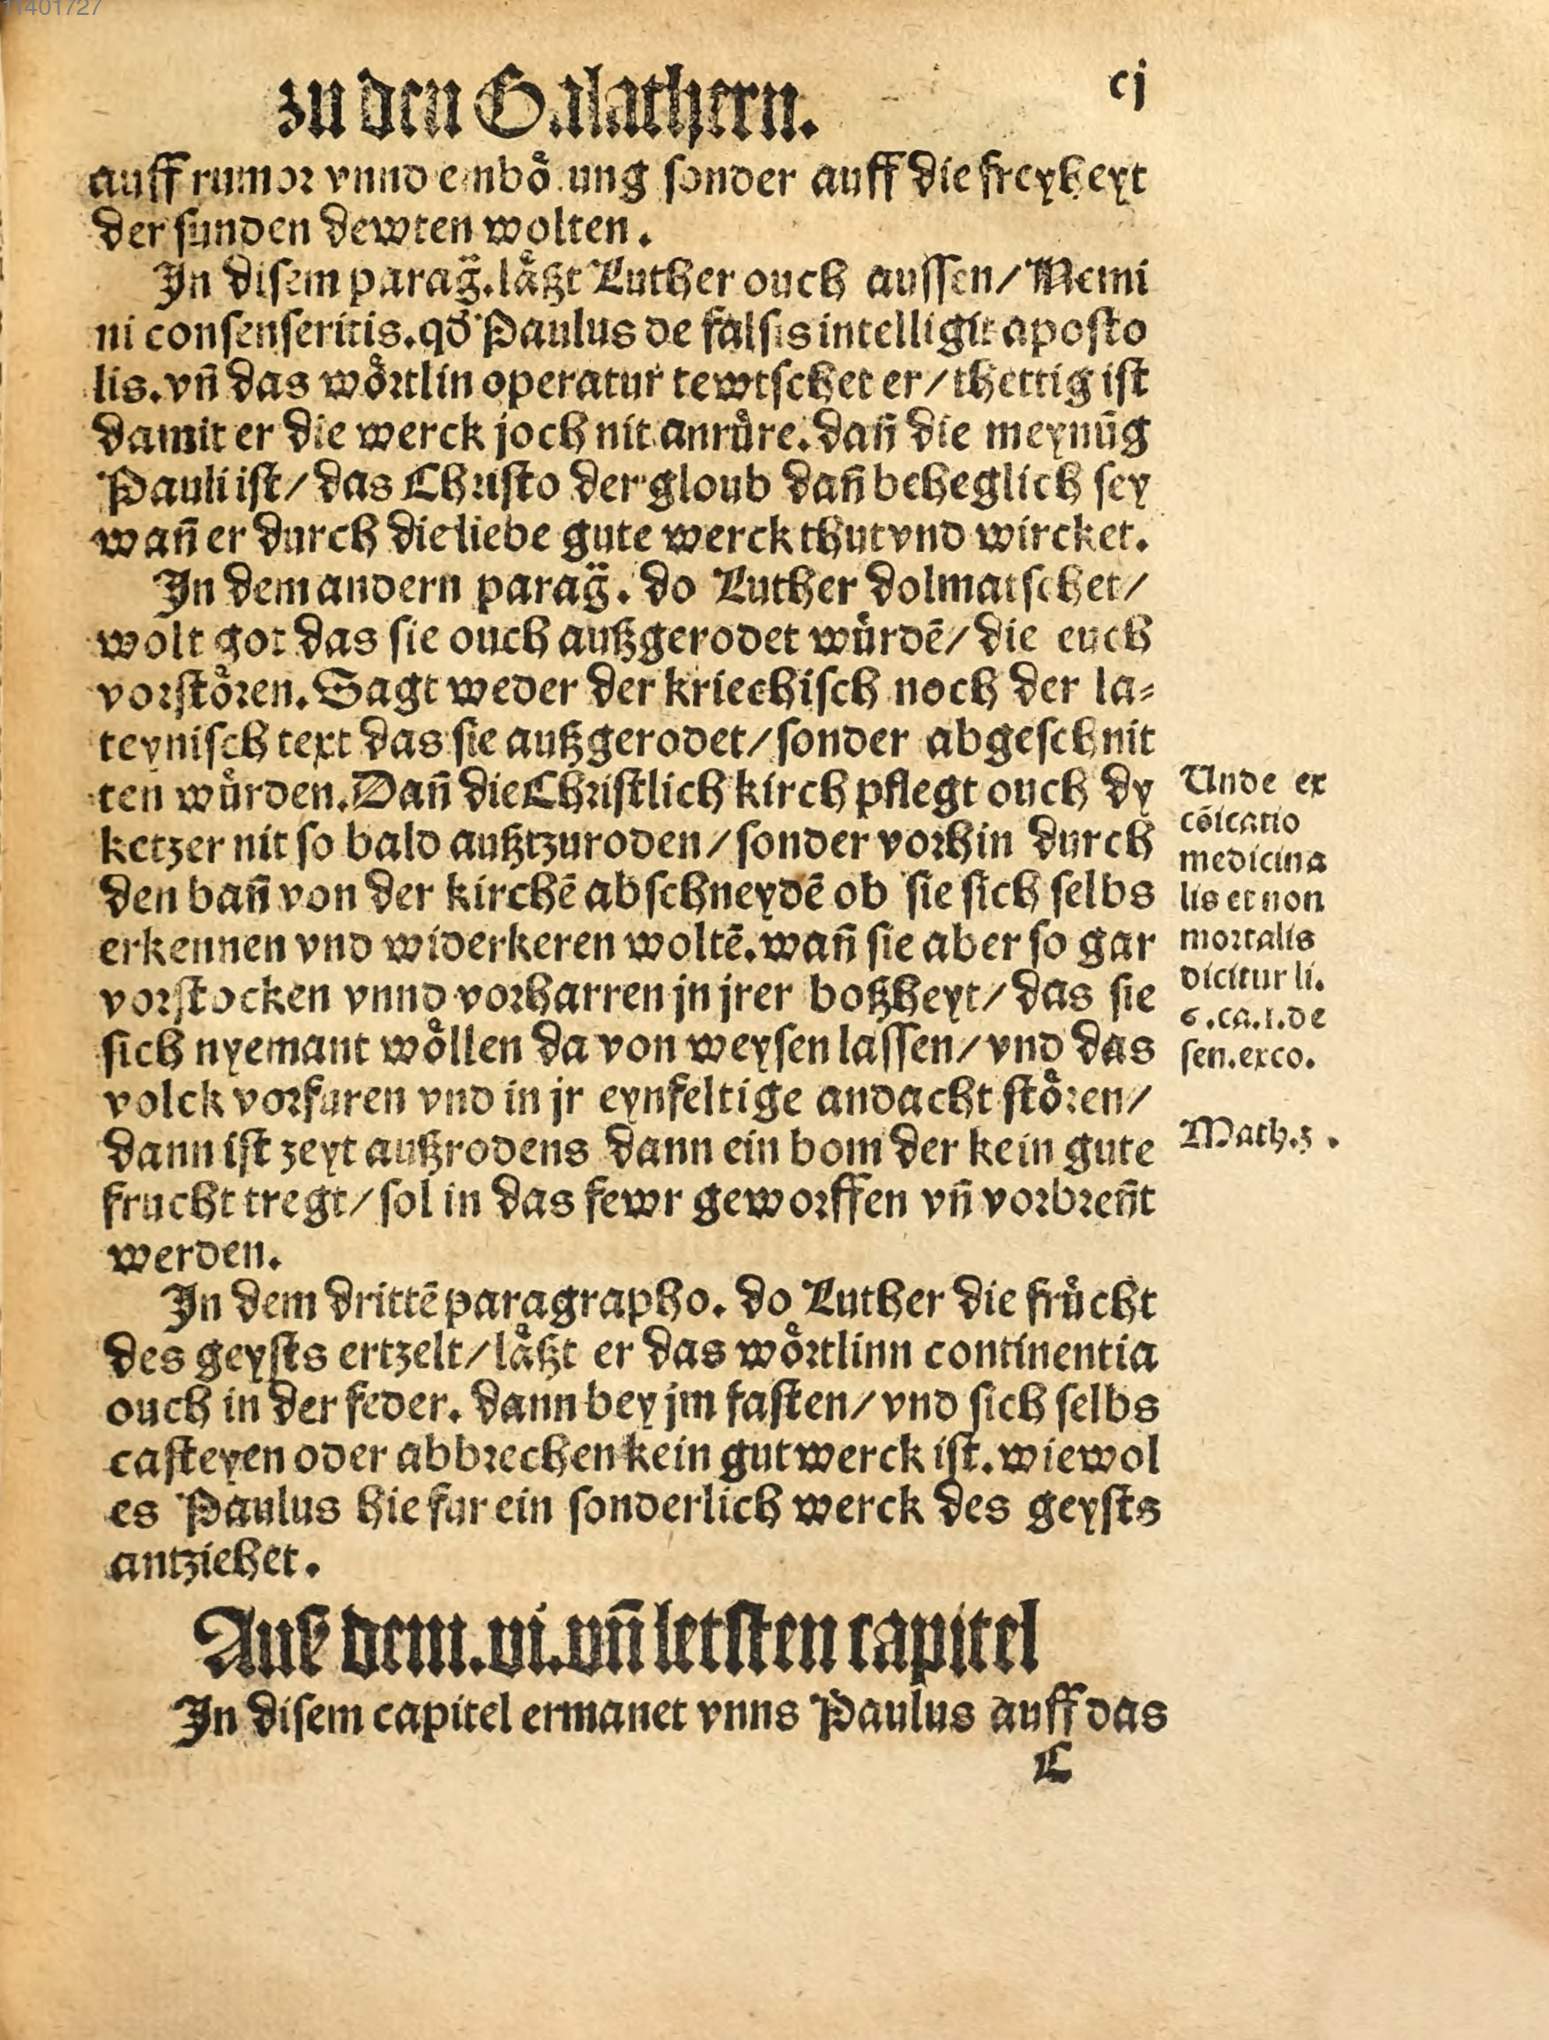 11401727
zu den Galathern.
cj
auff rumor vnnd embö ung sonder auff die freyheyt
der sunden dewten wolten.
In disem parag̈. låßt Luther ouch aussen/ Nemi
ni consenseritis. qd̓ Paulus de falsis intelligit aposto
lis. vñ das wo̊rtlin operatur tewtschet er/ thettig ist
damit er die werck joch nit anrůre. dañ die meynũg
Pauli ist/ das Christo der gloub dañ beheglich sey
wañ er durch die liebe gute werck thut vnd wircket.
In dem andern parag̈. do Luther dolmatschet/
wolt got das sie ouch außgerodet wůrdẽ/ die euch
vorsto̊ren. Sagt weder der kriechisch noch der la⸗
teynisch text das sie außgerodet/ sonder abgeschnit
ten wůrden. Dañ die Christlich kirch pflegt ouch dy
ketzer nit so bald außtzuroden/ sonder vorhin durch
den bañ von der kirchẽ abschneydẽ ob sie sich selbs
erkennen vnd widerkeren woltẽ. wañ sie aber so gar
vorstocken vnnd vorharren jn jrer boßheyt/ das sie
sich nyemant wo̊llen da von weysen lassen/ vnd das
volck vorfuren vnd in jr eynfeltige andacht sto̊ren/
dann ist zeyt außrodens dann ein bom der kein gute
frucht tregt/ sol in das fewr geworffen vñ vorbreñt
werden.
In dem drittẽ paragrapho. do Luther die frůcht
des geysts ertzelt/ låßt er das wo̊rtlinn continentia
ouch in der feder. dann bey jm fasten/ vnd sich selbs
casteyen oder abbrechen kein gut werck ist. wiewol
es Paulus hie fur ein sonderlich werck des geysts
antziehet.
Auß dem. vi. vñ letsten capitel
In disem capitel ermanet vnns Paulus auff das
C
Unde ex
cõicatio
medicina
lis et non
mortalis
dicitur li.
6. ca. 1. de
sen. exco.
Math. 3.